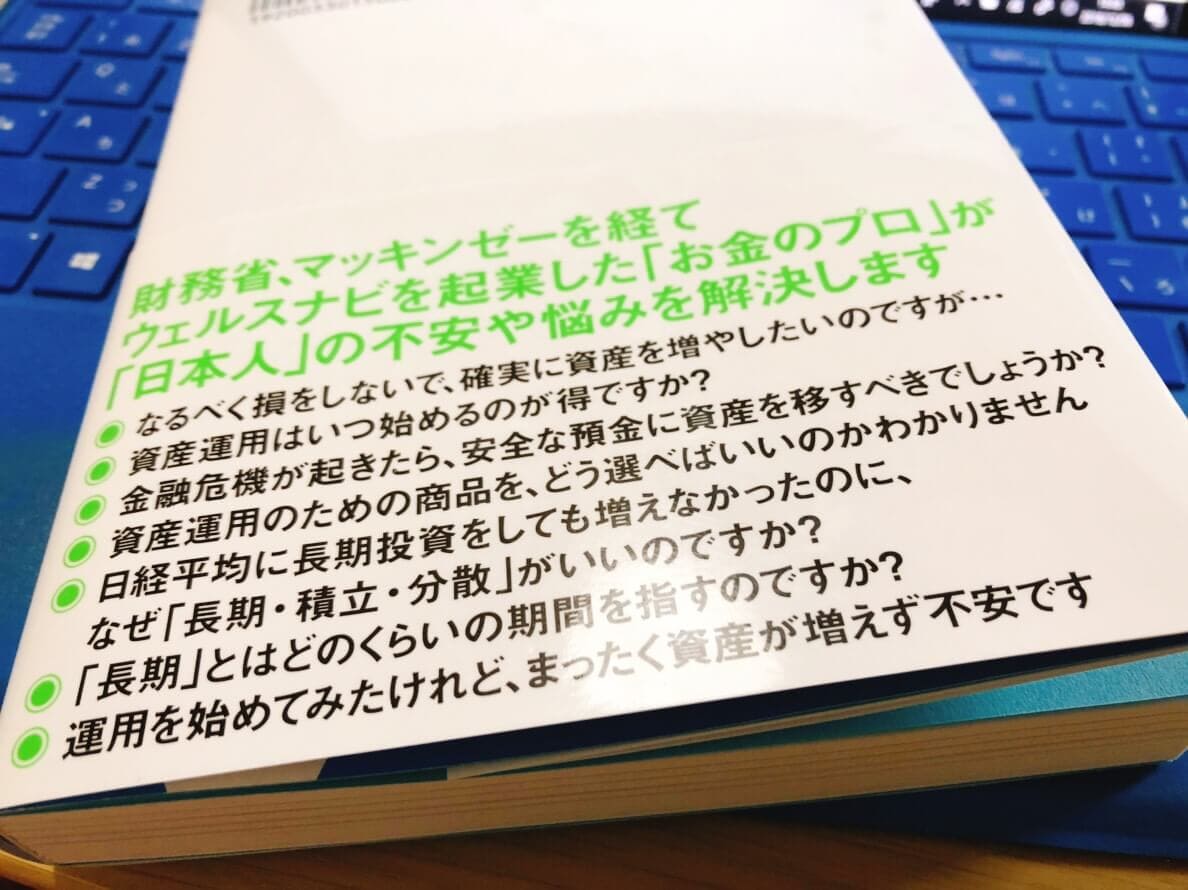 財務省、マッキンゼーを経て
ウェルスナビを起業した「お金のプロ」が
「日本人」の不安や悩みを解決します
● なるべく損をしないで、確実に資産を増やしたいのですが…
● 資産運用はいつ始めるのが得ですか?
● 金融危機が起きたら、安全な預金に資産を移すべきでしょうか?
● 資産運用のための商品を、どう選べばいいのかわかりません
● 日経平均に長期投資をしても増えなかったのに、
なぜ「長期・積立・分散」がいいのですか?
● 「長期」とはどのくらいの期間を指すのですか?
● 運用を始めてみたけれど、まったく資産が増えず不安です